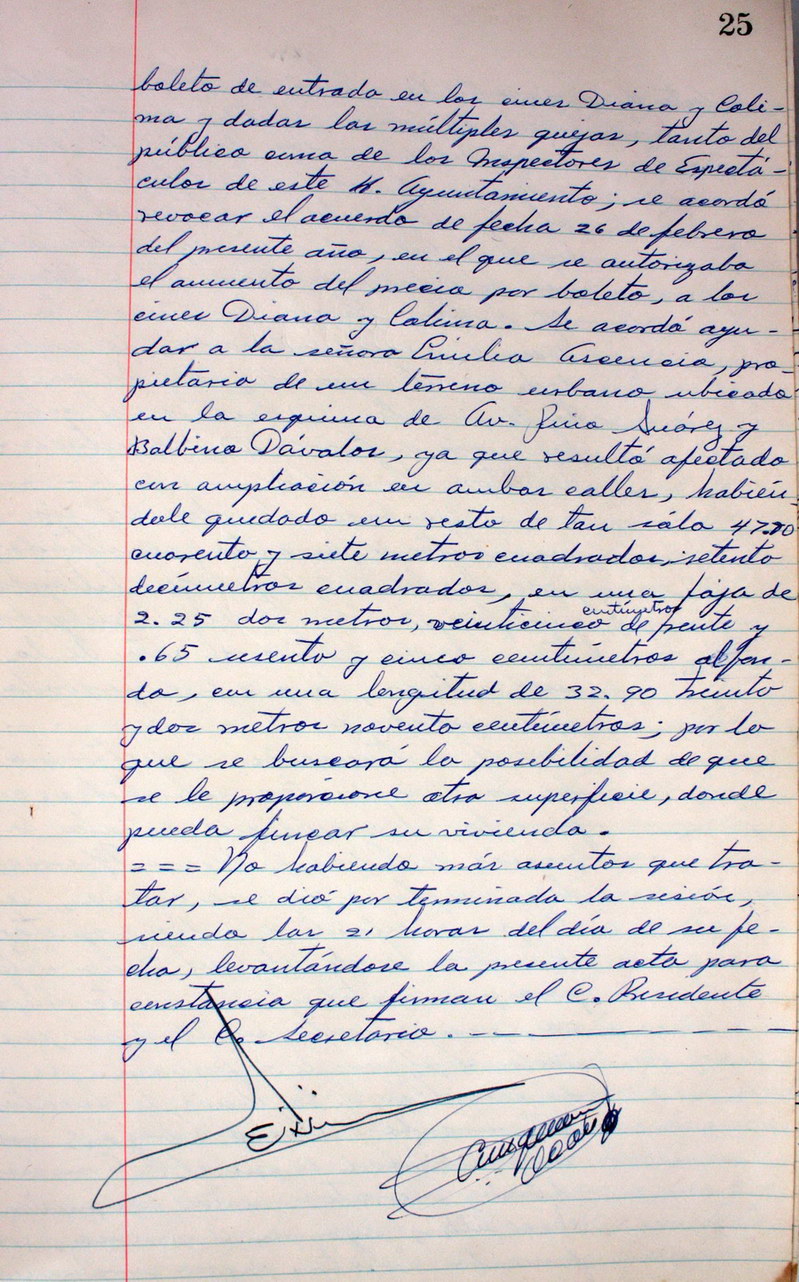 25
boleto de entrada en los cines Diana y Coli-
ma y dadas las múltiples quejas, tanto del
público como de los Inspectores de Espectá-
culos de este H. Ayuntamiento; se acordó
revocar el acuerdo de fecha 26 de febrero
del presente año, en el que se autorizaba
el aumento del precio por boleto, a los
cines Diana y Colima. Se acordó ayu-
dar a la señora Emilia Ascencia, pro-
pietaria de un terreno urbano ubicado
en la esquina de Av. Pino Suárez y
Balbino Dávalos, ya que resultó afectado
con ampliación en ambas calles, habién-
dole quedado un resto de tan sólo 47.70
cuarenta y siete metros cuadrados, setenta
decímetros cuadrados, en una faja de
centímetros
2.25 dos metros, veinticinco de frente y
.65 sesenta y cinco centímetros al fon-
do, con una longitud de 32.90 treinta
y dos metros noventa centímetros; por lo
que se buscará la posibilidad de que
se le proporcione otra superficie, donde
pueda fincar su vivienda.
=== No habiendo más asuntos que tra-
tar, se dió por terminada la sesión,
siendo las 21 horas del día de su fe-
cha, levantándose la presente acta para
constancia que firman el C. Presidente
y el C. Secretario.